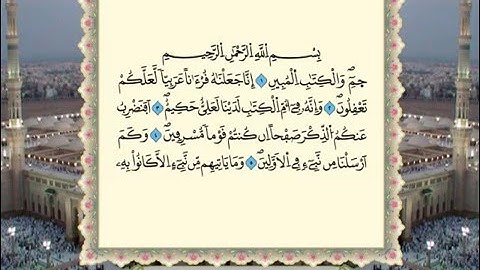 بِسْمِ اللَّهِ الرَّحْمَٰنِ الرَّحِيمِ
حمٓ وَالْكِتَٰبِ الْمُبِينِ ١ إِنَّا جَعَلْنَٰهُ قُرْءَاناً عَرَبِيّاً لَّعَلَّكُمْ
تَعْقِلُونَ ٢ وَإِنَّهُۥ فِےٓ أُمِّ الْكِتَٰبِ لَدَيْنَا لَعَلِيٌّ حَكِيمٌ ٣ اَفَنَضْرِبُ
عَنكُمُ الذِّكْرَ صَفْحاً اِن كُنتُمْ قَوْماً مُّسْرِفِينَ ٤ وَكَمَ
اَرْسَلْنَا مِن نَّبِےٓءٖ فِے اِلَاوَّلِينَ ٥ وَمَا يَاتِيهِم مِّن نَّبِےٓءٍ اِلَّا كَانُواْ بِهِۦ